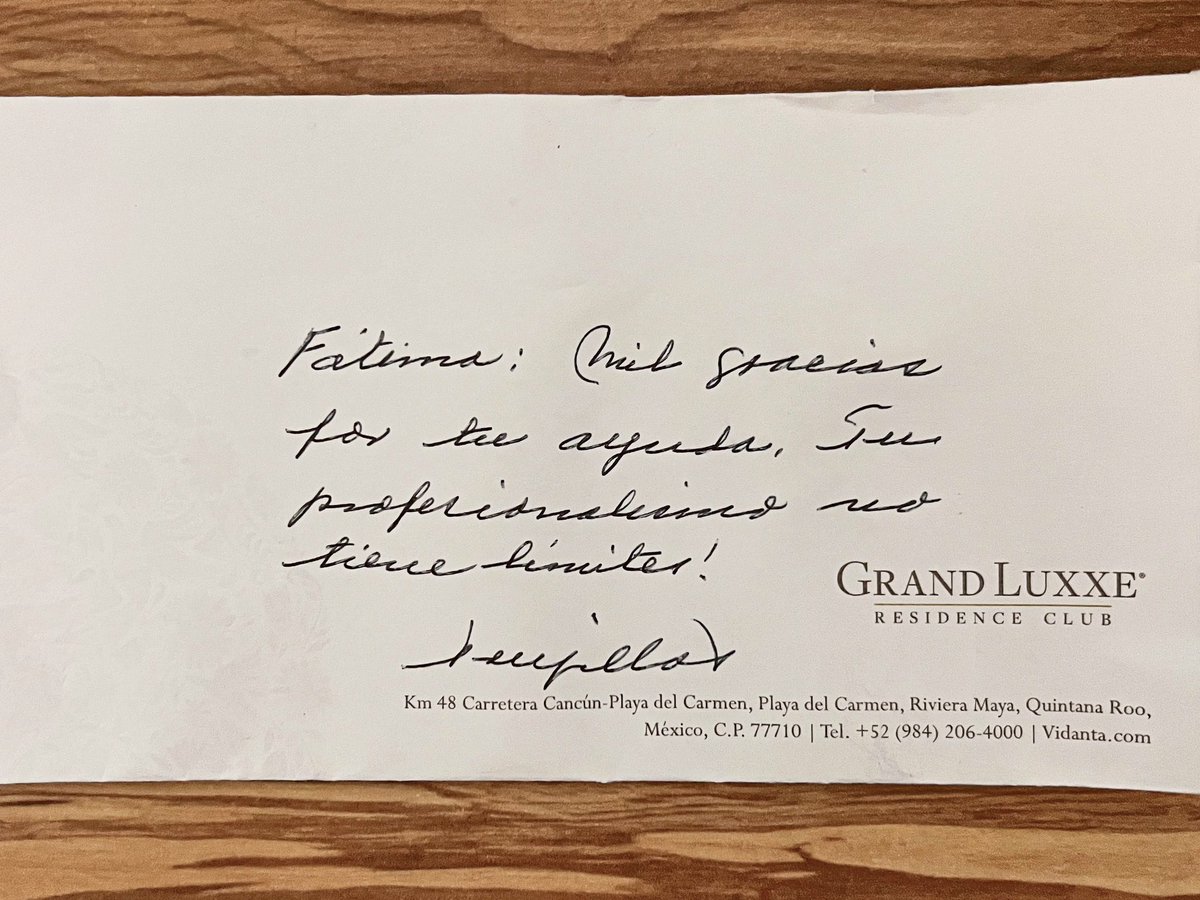 Fátima: Mil gracias
por tu ayuda. Tu
profesionalismo no
tiene límites!
Trujillo
GRAND LUXXE®
RESIDENCE CLUB
Km 48 Carretera Cancún-Playa del Carmen, Playa del Carmen, Riviera Maya, Quintana Roo,
México, C.P. 77710 | Tel. +52 (984) 206-4000 | Vidanta.com